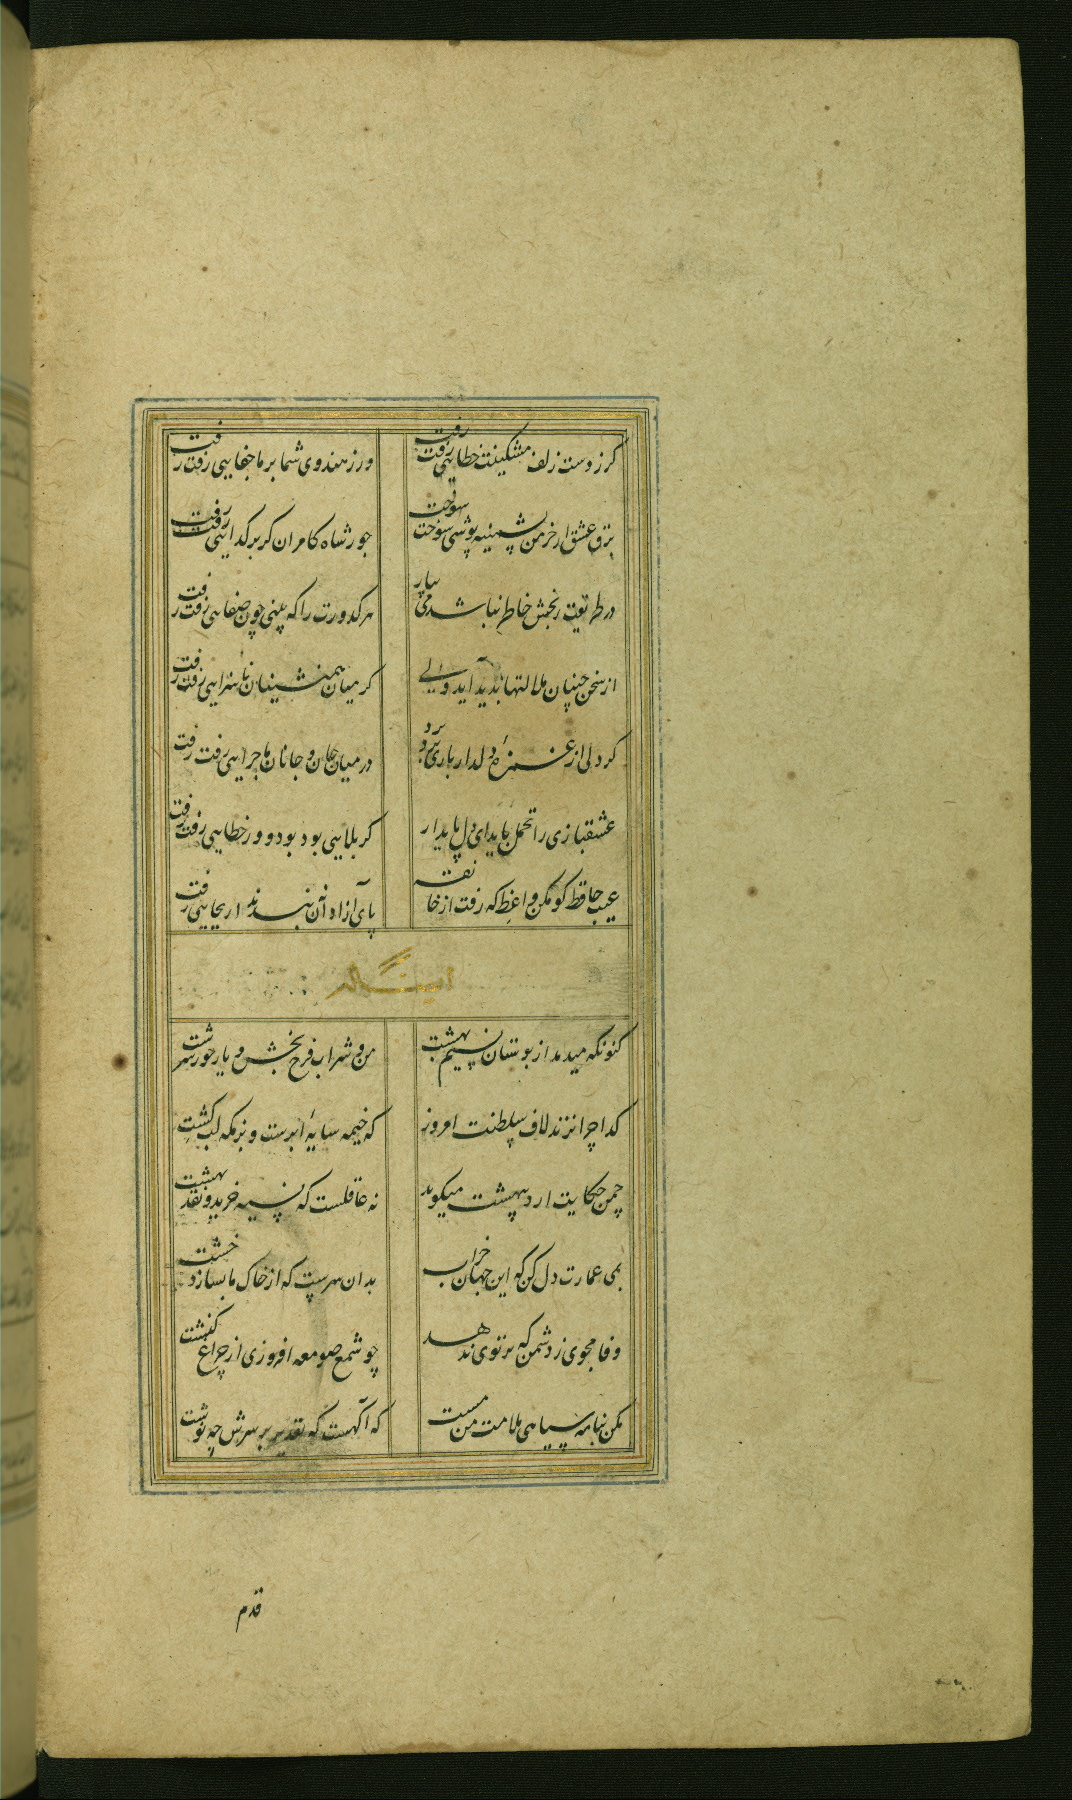 گر ز دست زلف مشکینت خطایی رفت رفت
ور ز هندوی شما بر ما جفایی رفت رفت
برق عشق ار خرمن پشمینه پوشی سوخت سوخت
جور شاه کامران گر بر گدایی رفت رفت
در طریقت رنجش خاطر نباشد می بیار
هر کدورت را که بینی چون صفایی رفت رفت
از سخن چینان ملالتها پدید آید ولی
گر میان همنشینان ناسزایی رفت رفت
گر دلی از غمزهٔ دلدار باری برد برد
در میان جان و جانان ماجرایی رفت رفت
عشقبازی را تحمل باید ای دل پایدار
گر بلایی بود بود و ور خطایی رفت رفت
عیب حافظ گو مکن واعظ که رفت از خانقه
پای آزادان نبندند ار بجایی رفت
ایضاً له
کنونکه میدمد از بوستان نسیم بهشت
من و شراب فرح بخش و یار حور سرشت
گدا چرا نزند لاف سلطنت امروز
که خیمه سایهٔ ابرست و بزمگه لب کشت
چمن حکایت اردبهشت میگوید
نه عاقلست که نسیه خرید و نقد بهشت
بمی عمارت دل کن که این جهان خراب
بدان سرست که از خاک ما بسازد خشت
وفا مجوی ز دشمن که پرتوی ندهد
چو شمع صومعه افروزی از چراغ کنشت
مکن بنامه سیاهی ملامت من مست
که آگهست که تقدیر بر سرش چه نوشت
قدم